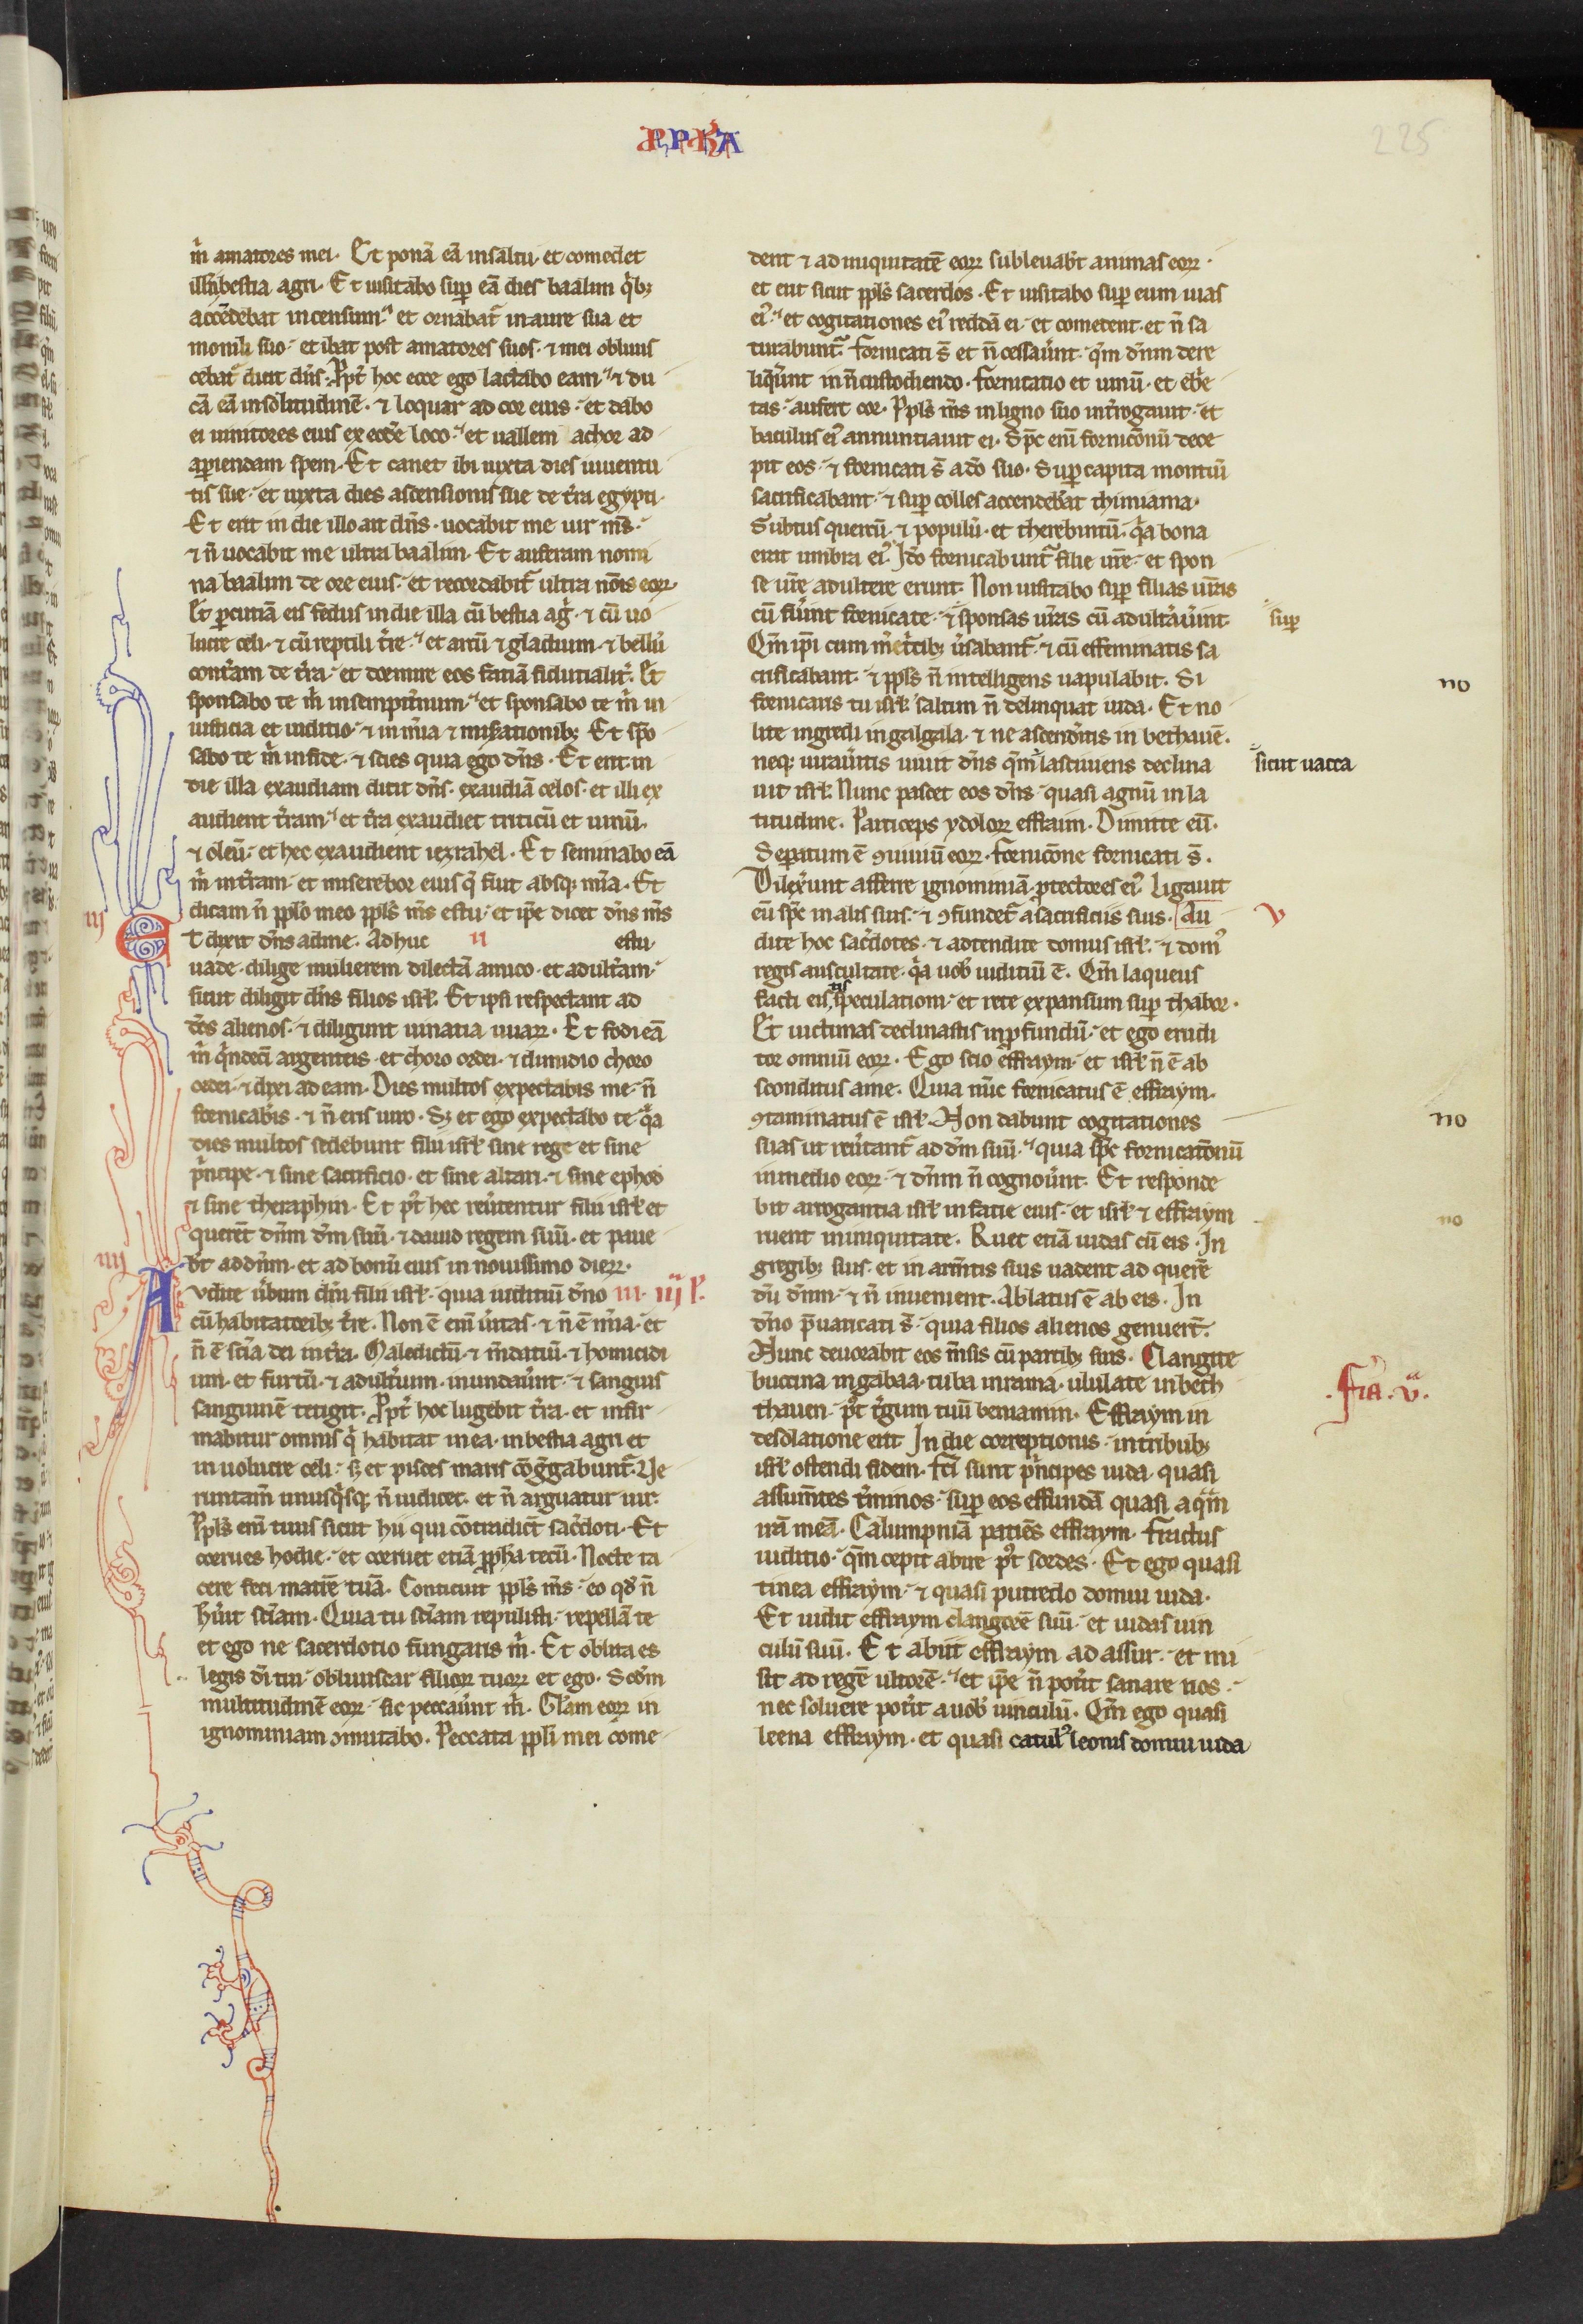 PPHA
225
m̄ amatores mei. Et ponā eā in saltu et comedet
illā bestia agri. Et uisitabo sup eā dies baalim qͥbꝫ
accēdebat incensum et ornabat̄ in aure sua et
monili suo et ibat post amatores suos ⁊ mei obliuis
cebat̄ dicit dn̄s. Ppt̄ hoc ecce ego lactabo eam ⁊ du
cā eā in solitudinē ⁊ loquar ad cor eius et dabo
ei uinitores eius ex eodē loco et uallem achor ad
aperiendam spem. Et canet ibi iuxta dies iuuentu
tis sue et iuxta dies ascensionis sue de tr̄a egypti.
Et erit in die illo ait dn̄s uocabit me uir ms̄
⁊ n̄ uocabit me ultra baalim. Et auferam nomi
na baalim de ore eius et recordabit̄ ultra nōis eoꝝ
Et pcutiā eis fedus in die illa cū bestia agͥ ⁊ cū uo
lucre celi ⁊ cū reptili tr̄e et arcū ⁊ gladium ⁊ bellū
cont̄am de tr̄a et dormire eos fatiā fidutialit̄. Et
sponsabo te m̄ in sempit̄num et sponsabo te m̄ in
iusticia et iuditio ⁊ in mīa ⁊ miserationibꝫ Et spō
sabo te m̄ in fide ⁊ scies quia ego dn̄s. Et erit in
die illa exaudiam dicit dn̄s exaudiā celos et illi ex
audient tr̄am et tr̄a exaudiet triticū et uinū
⁊ oleū et hec exaudient iezrahel. Et seminabo eā
m̄ in tr̄am et miserebor eius q̄ fuit absqꝫ mīa. Et
dicam n̄ pplo meo ppls̄ ms̄ es tu et ipe dicet dn̄s ms̄
iij
Et dixit dn̄s ad me. Adhuc ii es tu.
uade dilige mulierem dilectā amico et adult̄am
sicut diligit dn̄s filios isrl̄. Et ipsi respectant ad
dēs alienos ⁊ diligunt uinatia uuaꝝ. Et fodi eā
m̄ qͥndecī argenteis et choro ordei ⁊ dimidio choro
ordei ⁊ dixi ad eam. Dies multos expectabis me n̄
fornicabis ⁊ n̄ eris uiro. Sꝫ et ego expectabo te qͣ
dies multos sedebunt filii isrl̄ sine rege et sine
pͥncipe ⁊ sine sacrificio et sine altari ⁊ sine ephod
⁊ sine theraphin. Et pt̄ hec reūtentur filii isrl̄ et
querēt dn̄m dm̄ suū ⁊ dauid regem suū et paue
bt̄ ad dn̄m et ad bonū eius in nouissimo dieꝝ.
iiij
Audite ūbum dn̄i filii isrl̄ quia iuditiū dn̄o iii. iiij ł.
cū habitatoribꝫ tr̄e. Non ē eni ūitas ⁊ n̄ ē mīa et
n̄ ē scīa dei in tr̄a. Maledictū ⁊ m̄datiū ⁊ homicidi
um et furtū ⁊ adult̄ium inundaūnt ⁊ sanguis
sanguinē tetigit. Ppt̄ hoc lugebit tr̄a et infir
mabitur omnis qͥ habitat in ea in bestia agri et
in uolucre celi sꝫ et pisces maris cōgͤgabunt̄ Ve
runtam̄ unusqͥsqꝫ n̄ iudicet et n̄ arguatur uir.
Ppls̄ eni tuus sicut hii qui cōtradict̄ sac̄doti. Et
corrues hodie et corruet etiā pph̄a tecū. Nocte ta
cere feci matrē tuā. Conticuit ppls̄ ms̄ eo qd̄ n̄
hūit sciam. Quia tu sciam repulisti repellā te
et ego ne sacerdotio fungaris m̄. Et oblita es
legis dī tui obliuiscar filioꝝ tuoꝝ et ego. Scdm̄
multitudinē eoꝝ sic peccaūnt m̄. Gl̄am eoꝝ in
ignominiam ꝯmutabo. Peccata ppl̄i mei come
dent ⁊ ad iniquitatē eoꝝ subleuabt̄ animas eoꝝ.
et erit sicut ppls̄ sacerdos. Et uisitabo sup eum uias
eiꝰ et cogitationes eiꝰ reddā ei et comedent et n̄ sa
turabunt̄ fornicati s̄ et n̄ cessaūnt qm̄ dn̄m dere
liqͥunt in n̄ custodiendo. Fornicatio et uinū et ebͥe
tas aufert cor. Ppls̄ ms̄ in ligno suo int̄rogauit et
baculus eiꝰ annuntiauit ei. Spc̄ eni fornicōnū dece
pit eos ⁊ fornicati s̄ a dō suo. Sup capita montiū
sacrificabant ⁊ sup colles accendebāt thimiama.
Subtus quercū ⁊ populū et therebintū qͣ bona
erat umbra eiꝰ. Idō fornicabunt̄ filie ūre et spon
se ūre adultere erunt. Non uisitabo sup filias ūras
cū fūint fornicate ⁊ sponsas ūras cū adult̄aūint
sup
Qm̄ ipi cum m̄etͥcibꝫ ūsabant̄ ⁊ cū effeminatis sa
crificabant ⁊ ppls̄ n̄ intelligens uapulabit. Si
no
fornicaris tu isrl̄ saltim n̄ delinquat iuda. Et no
lite ingredi in galgala ⁊ ne ascendͥitis in bethauē.
neqꝫ iuraūitis uiuit dn̄s qm̄ lasciuiens declina
sicut uacca
uit isrl̄. Nunc pascet eos dn̄s quasi agnū in la
titudine. Particeps ydoloꝝ effraim. Dimitte eū.
Separatum ē ꝯuiuiū eoꝝ. fornicōne fornicati s̄.
Dilexūnt afferre ignominiā ptectores eiꝰ. Ligauit
eū spc̄ in alis suis ⁊ ꝯfundet̄ a sacrificiis suis. Au
v
dite hoc sac̄dotes ⁊ adtendite domus isrl̄ ⁊ domꝰ
regis auscultate qͣ uob̄ iuditiū ē. Qm̄ laqueus
facti eis tis speculationi et rete expansum sup thabor.
Et uictimas declinastis in pfundū et ego erudi
tor omniū eoꝝ. Ego scio effraym et isrl̄ n̄ ē ab
sconditus a me. Quia nūc fornicatus ē effraym.
ꝯtaminatus ē isrl̄. Non dabunt cogitationes
no
suas ut reūtant̄ ad dm̄ suū quia spc̄ fornicatōnū
in medio eoꝝ ⁊ dn̄m n̄ cognoūnt. Et responde
bit arrogantia isrl̄ in facie eius et isrl̄ ⁊ effraym
no
ruent in iniquitate. Ruet etiā iudas cū eis. In
gregibꝫ suis et in armētis suis uadent ad querē
dū dn̄m ⁊ n̄ inuenient. Ablatus ē ab eis. In
dn̄o p̄uaricati s̄ quia filios alienos genuert̄.
Nunc deuorabit eos m̄sis cū partibꝫ suis. Clangite
buccina in gabaa tuba in rama ululate in beth
.fīa. v.
thauen pt̄ t̄gum tuū beniamin. Effraym in
desolatione erit In die correptionis in tribubꝫ
isrl̄ ostendi fidem. fcī sunt pͥncipes iuda quasi
assum̄tes t̄minos sup eos effundā quasi aqͣm
irā meā. Calumpniā patiēs effraym fractus
iuditio qm̄ cepit abire pt̄ sordes. Et ego quasi
tinea effraym ⁊ quasi putredo domui iuda.
Et uidit effraym clangorē suū et iudas uin
culū suū. Et abiit effraym ad assur et mi
sit ad regē ultorē et ipe n̄ potͥit sanare uos
nec soluere potͥit a uob̄ uinculū. Qm̄ ego quasi
leena effraym et quasi catulꝰ leonis domui iuda